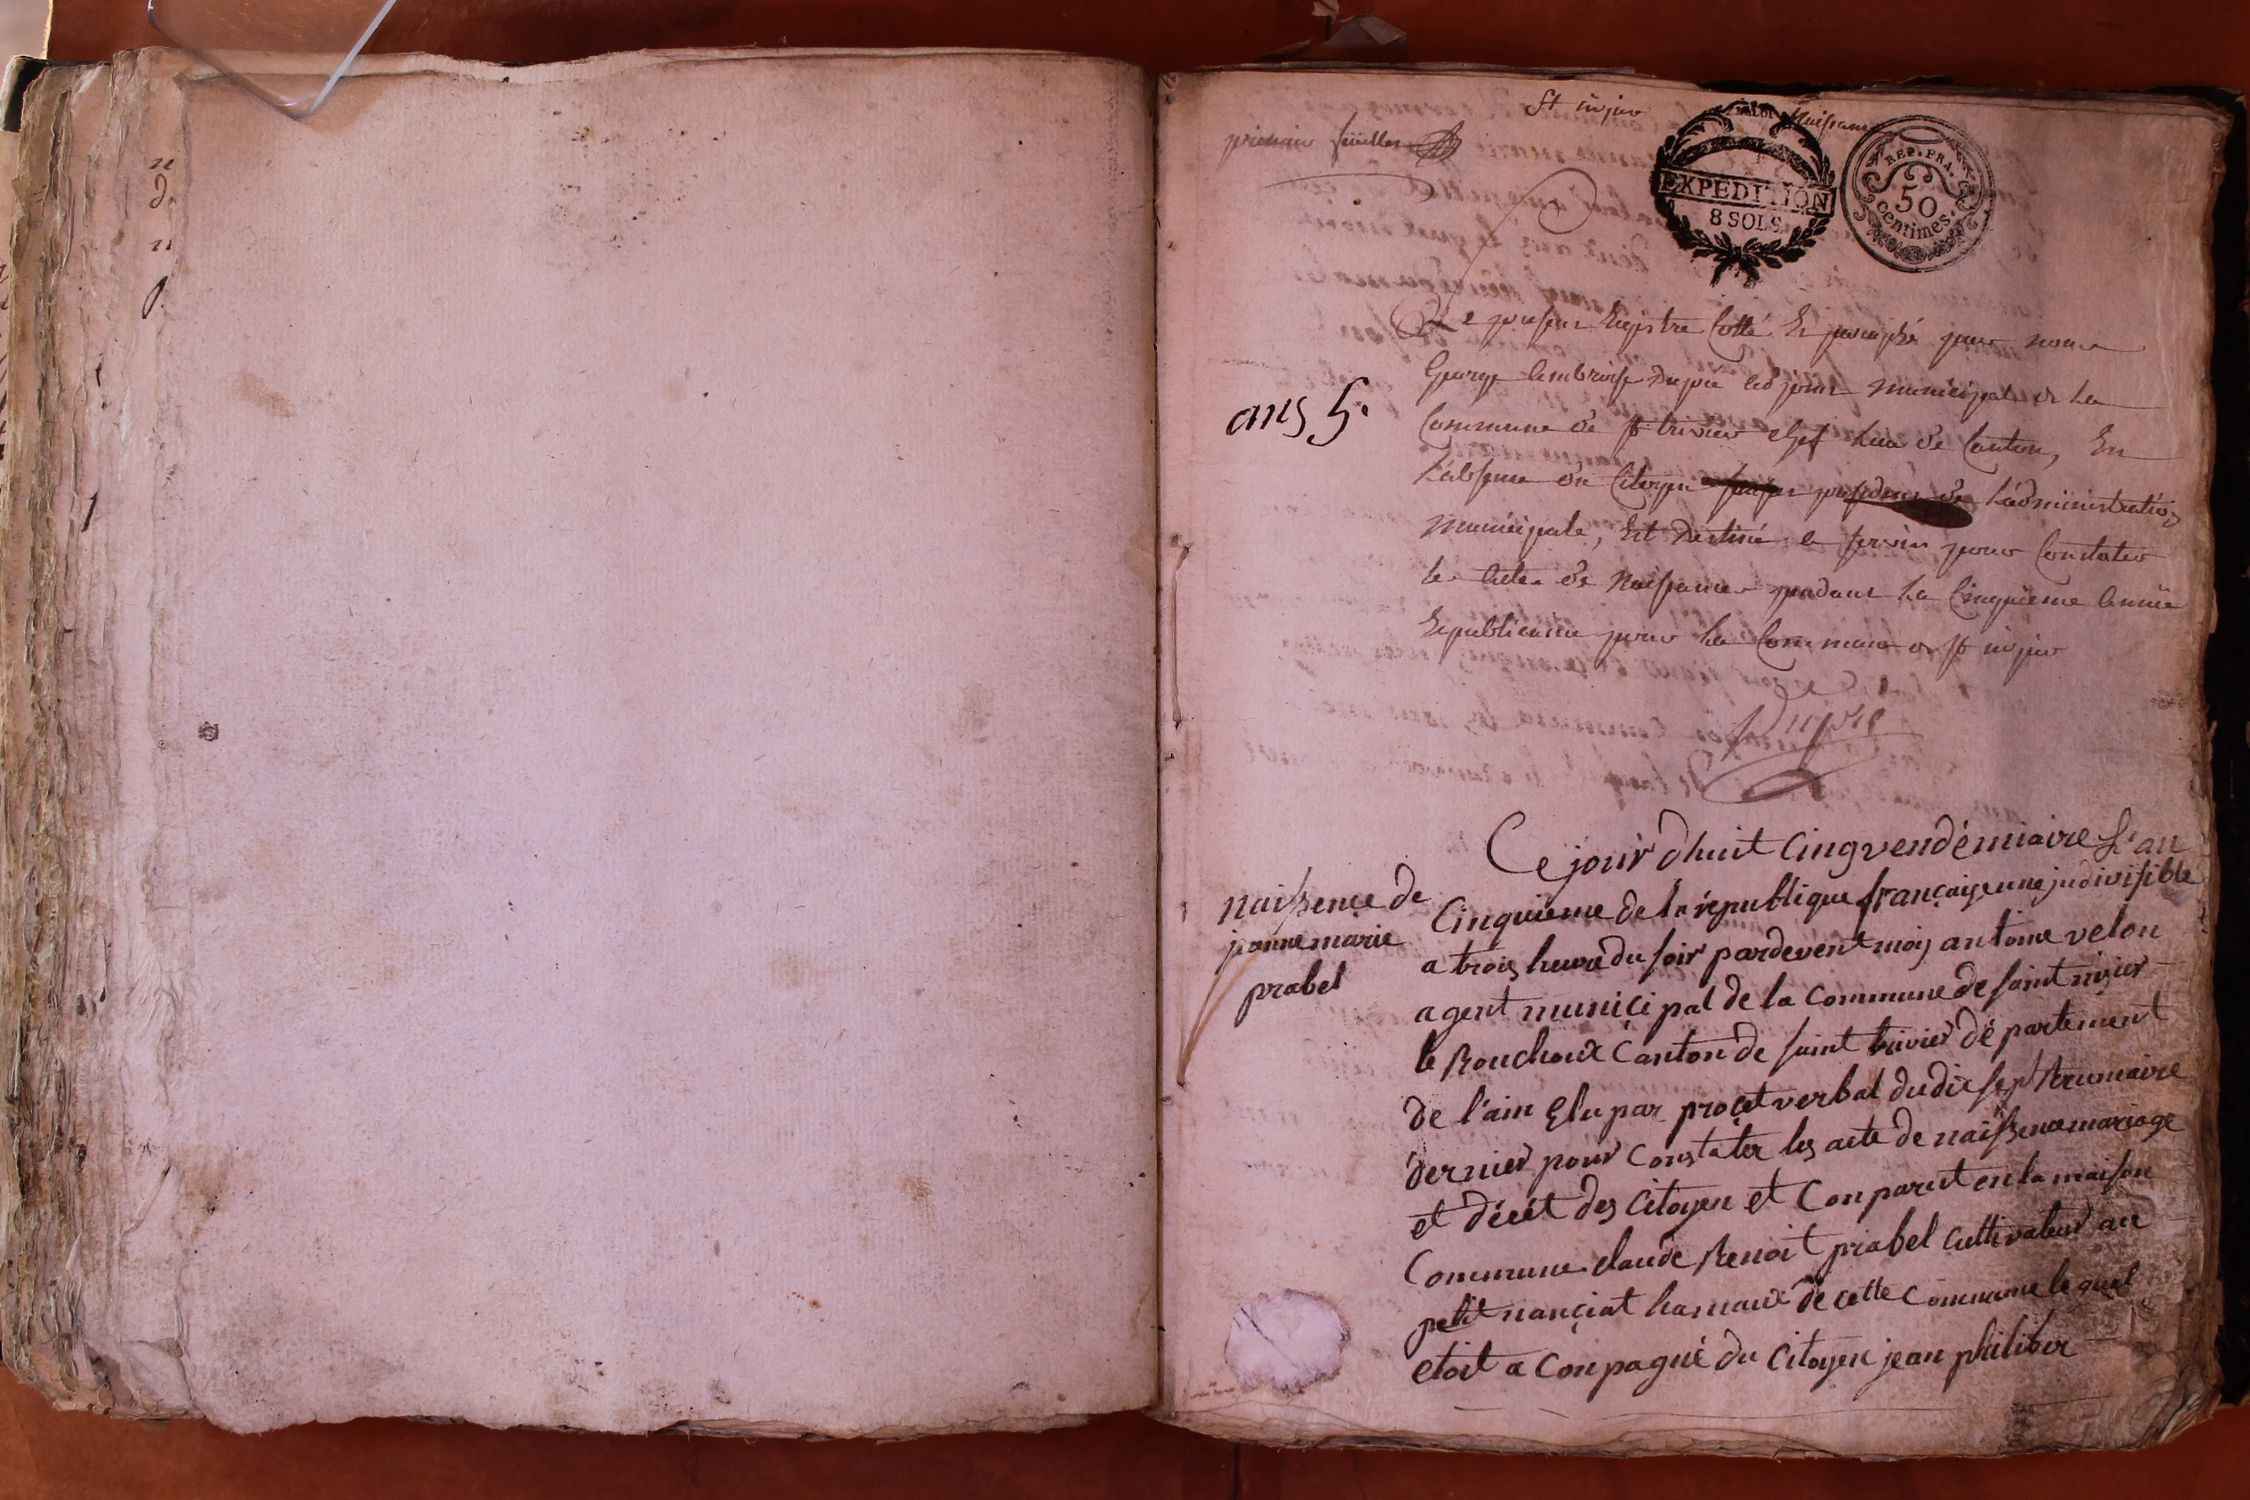 St nizier
Naissance
premier feuillet
EXPEDITION
8 SOLS.
REP. FRA.
50
centimes.
Le present Registre Cotté Et paraphé par nous
George Ambroise Dupré adjoint municipal de La
ans 5.
Commune de St trivier chef Lieu de Canton, En
L'absence du Citoyen president de L'administration
municipale, Est Destiné a servir pour Constater
les actes de Naissance pendant La Cinquieme année
Republicaine pour La Commune de St nizier
Dupré
Ce jour dhuit Cinq vendémiaire L'an
naissence de
jeanne marie
prabel
Cinquieme de la république françaisse une judivisible
a trois heure du soir pardevent moy antoine velon
agent municipal de la Commune de saint nizier
le Bouchoux Canton de saint trivier département
de l'ain Elu par procet verbal du dix sept brumaire
dernier pour Constater les acte de naissence mariage
et décét des Citoyen et Conparut en la maison
Commune claude Benoit prabel Cultivateur au
petit nançiat hamaux de cette Commune le quel
etoit a Conpagné du Citoyen jean philiber